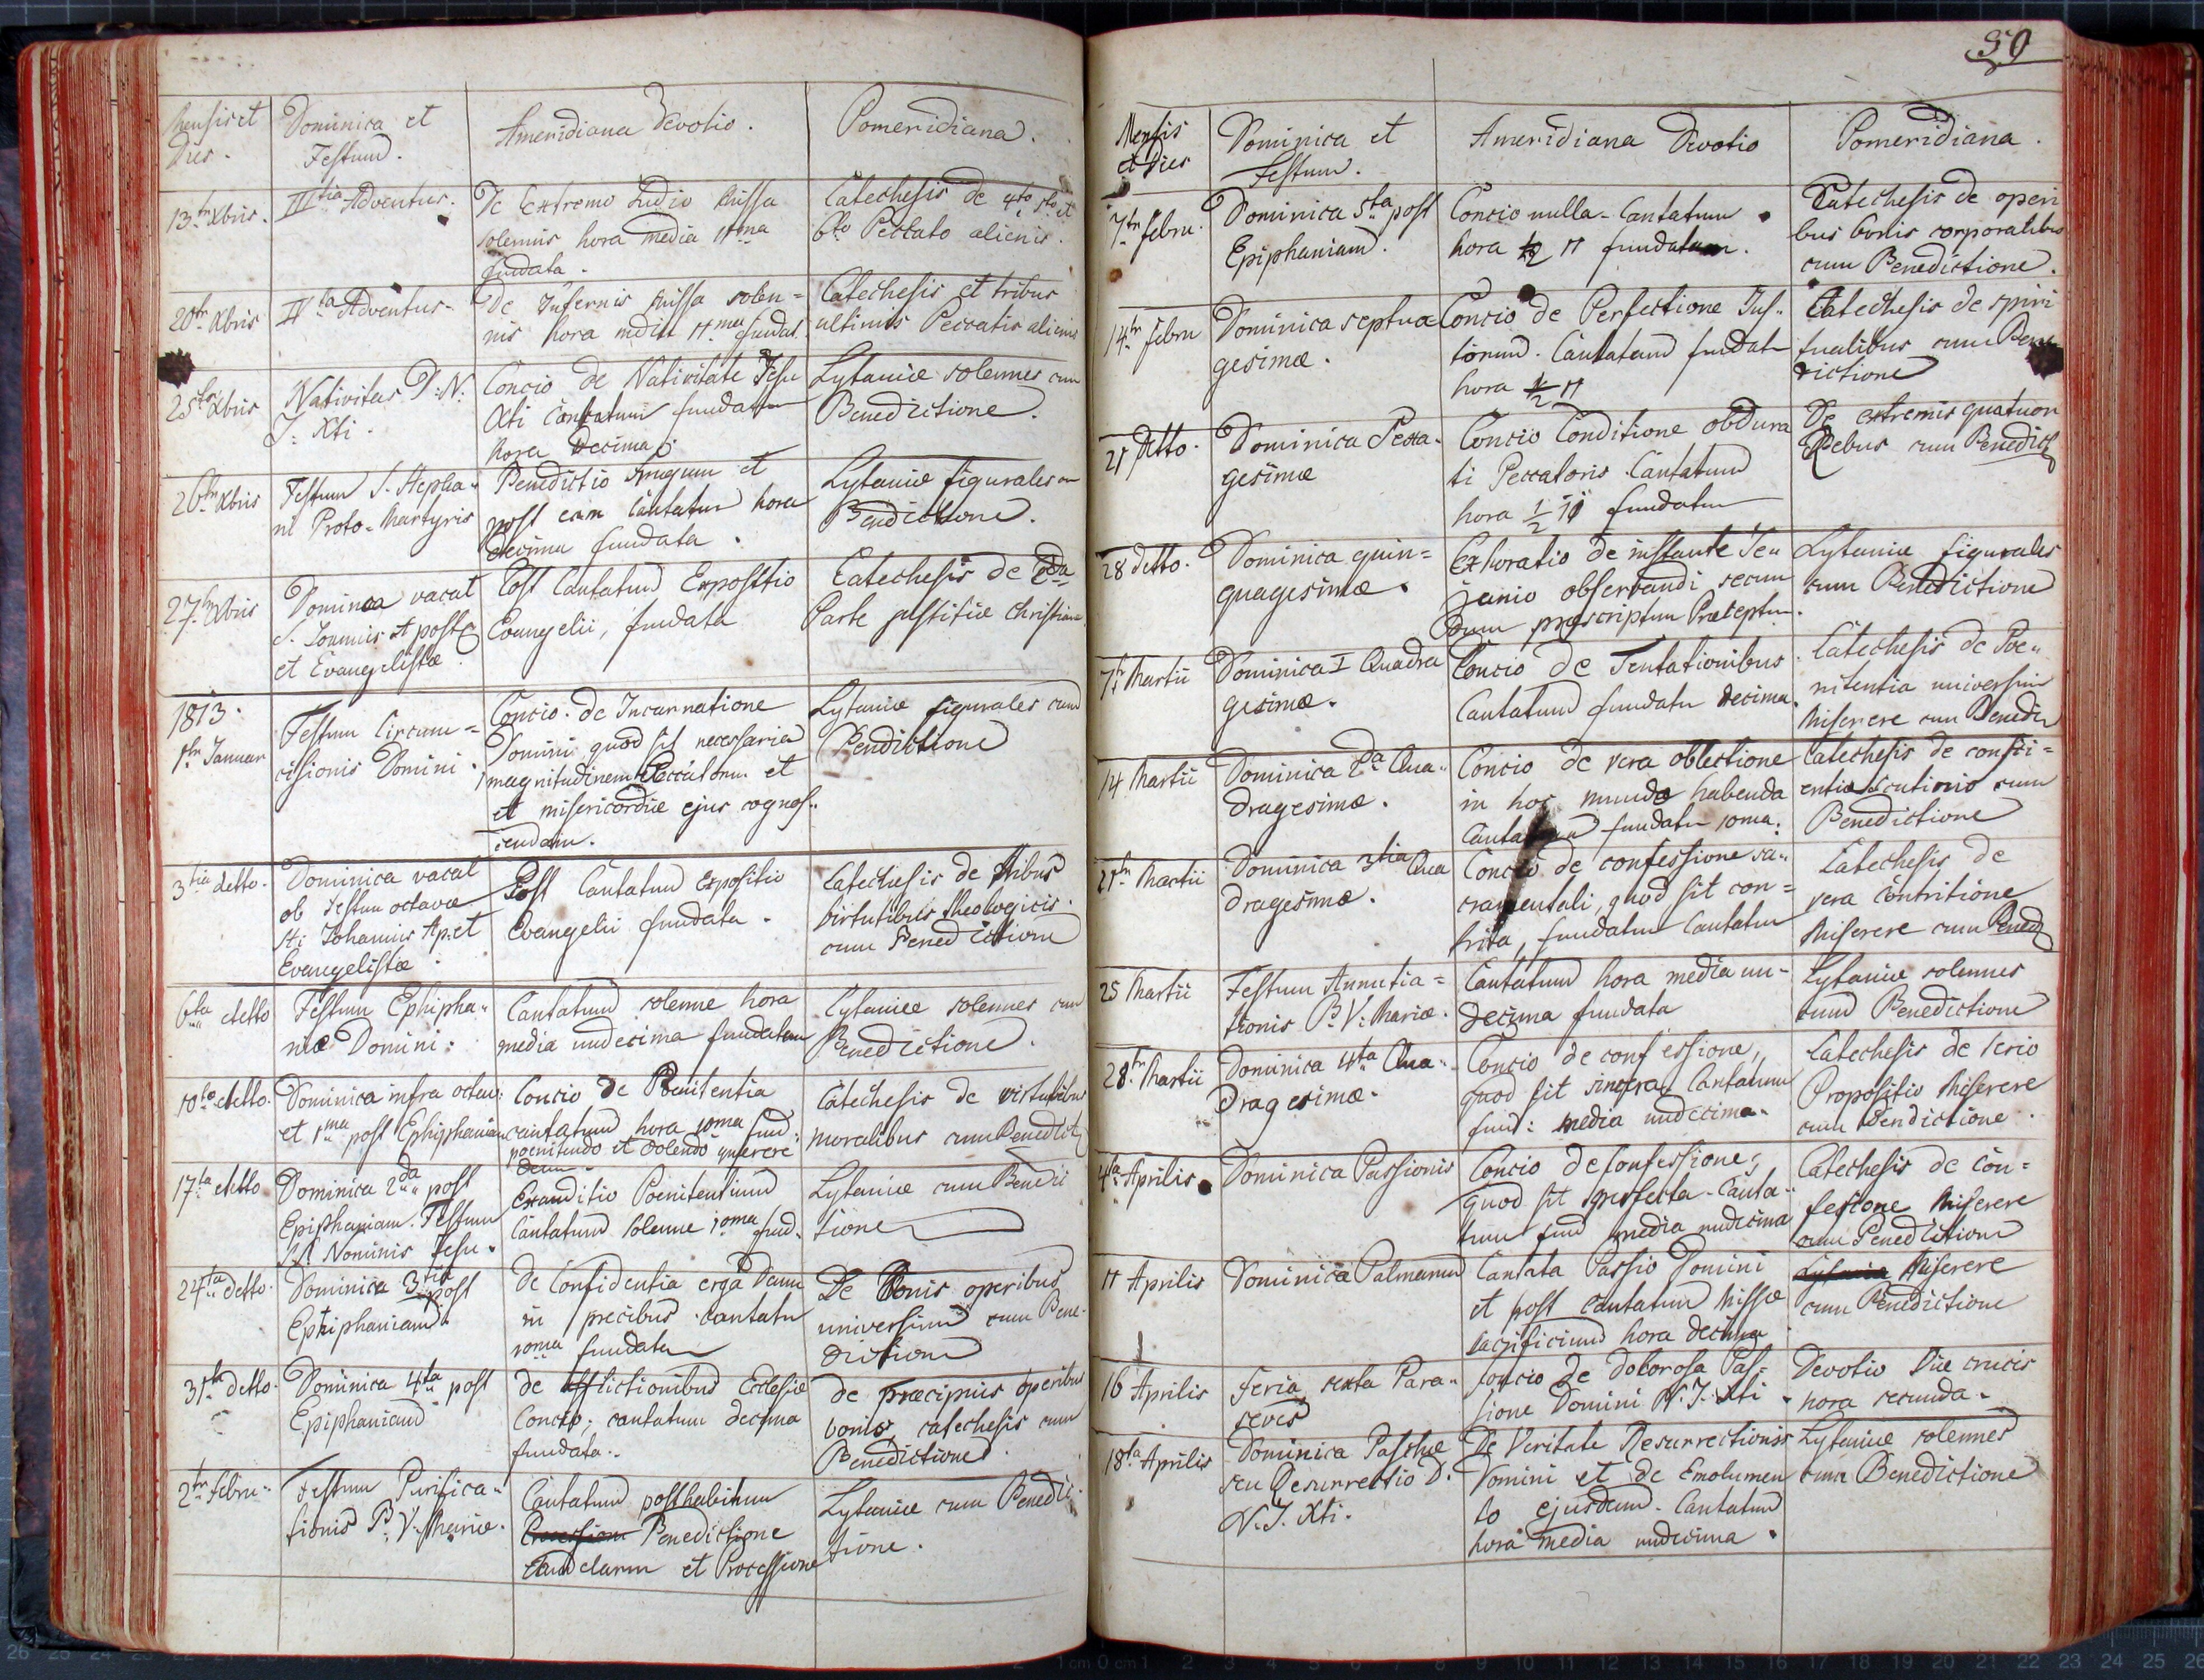 Mensis et
Dies.
Dominica et
Festum.
Ameridiana Devotio.
Pomeridiana.
13tr Xbris.
IIItia Adventus.
De Extremo Judio Missa
solemnis hora media 11ma
fundata.
Catechesis de 4to 5to et
6to Peccato alienis.
20tr Xbris
IVta Adventus.
De Infernis Missa solen=
nis hora media 11ma fundat.
Catechesis et tribus
ultimis Peccatis alienis
25ta Xbris
Nativitas D: N:
J: Xti.
Concio de Nativitate Jesu
Xti Cantatum fundatum
hora Decima.
Lytaniæ solennes cum
Benedictione.
26tr Xbris
Festum S. Stepha=
ni Proto-Martyris
Benedictio frugum et
post eam Cantatum hora
decima fundata.
Lytaniæ figurales cum
Bendictione.
27tr Xbris
Dominica vacat
S. Joannis et
et Evangelistæ.
Post Cantatum Expositio
Evangelii, fundata
Catechesis de 2da
Parte justitiæ Christianæ
1813.
1tr Januar
Festum Circum=
cisionis Domini.
Concio de Incarnatione
Domini quod sit necessaria
magnitudinem Peccatorum et
et misericordiæ ejus cognos=
cendam.
Lytaniæ figurales cum
Bendictione
3tia detto.
Dominica vacat
ob Festum octavæ
Sti Johannis Ap. et
Evangelistæ.
Post Cantatum Expositio
Evangelii fundata.
Catechesis de tribus
Virtutibus theologicis.
cum Benedictione
6ta detto
Festum Ephipha=
niæ Domini.
Cantatum solenne hora
media undecima fundatum
Lytaniæ solennes cum
Benedictione.
10ta detto.
Dominica infra octav:
et 1ma post Ephiphaniam
Concio de Penitentia
cantatum hora 10ma fund:
poenitendo et dolendo quærere
Deum.
Catechesis de virtutibus
moralibus cum Benedict
17ta detto
Dominica 2da post
Epiphaniam. Festum
SS. Nominis Jesu.
Exauditio Poenitentium
Cantatum solenne 10ma fund.
Lytaniæ cum Benedi
tione
24ta detto.
Dominica 3tia post
Epiphaniam.
De Confidentia erga Deum
in precibus cantatu
10ma fundatum
De Bonis operibus
universim cum Bene=
dictione
31ta detto.
Dominica 4ta post
Epiphaniam
de afflictionibus Ecclesiæ
Concio, cantatum decima
fundata.
de præcipuis operibus
bonis, catechesis cum
Benedictione.
2tr Febru.
Festum Purifica=
tionis B. V. Mariæ.
Cantatum posthabitum
Benedictione
Candelarum et Processione
Lytaniæ cum Benedic=
tione.
50
Mensis
et Dies
Dominica et
Festum.
Ameridiana Devotio
Pomeridiana.
7tr Febru.
Dominica 5ta post
Epiphaniam.
Concio nulla - Cantatum
hora 1/2 11 fundatum.
Catechesis de operi
bus bonis corporalibus
cum Benedictione.
14tr Febru
Dominica septua
gesimæ.
Concio de Perfectione Jus=
torum. Cantatum fundat
hora 1/2 11
Catechesis de spiri
tualibus cum Bene
dictione
21 detto.
Dominica Sexa=
gesimæ
Concio Conditione obdura
ti Peccatoris Cantatum
hora 1/2 11 fundatum
De extremis quatuor
Rebus cum Benedict
28 detto.
Dominica quin=
quagesimæ.
Exhoratio de instante Je=
junio observandi secun
dum præscriptum Præceptum.
Lytaniæ figurales
cum Benedictione
7tr Martii
Dominica I Quadra
gesimæ.
Concio de Tentationibus
Cantatum fundatu decima.
Catechesis de Poe=
nitentia universim
Miserere cum Benedict
14 Martii
Dominica 2da Qua=
dragesimæ.
Concio de vera oblectione
in hoc mundo habenda
Cantatum fundatu 10ma.
Catechesis de consci=
entiæ scutinio cum
Benedictione
21tr Martii
Dominica 3tia Qua
dragesimæ.
Concio de confessione sa=
cramentali, quod sit con=
trita, fundatum Cantatum
Catechesis de
vera Contritione
Miserere cum Bened
25 Martii
Festum Annutia=
tionis B. V. Mariæ.
Cantatum hora media un-
decima fundata
Lytaniæ solennes
cum Benedictione
28tr Martii
Dominica 4ta Qua=
dragesimæ.
Concio de confessione,
quod sit sincera, Cantatum
fund: media undecima.
Catechesis de serio
Propositio Miserere
cum Bendictione.
4ta Aprilis
Dominica Passionis
Concio de Confessione;
quod sit perfecta - Canta=
tum fund media undecima
Catechesis de con=
fesione Miserere
cum Benedictione
11 Aprilis
Dominica Palmarum
Cantata Passio Domini
et post cantatum Missæ
sacrificium hora decima
Lytaniæ Miserere
cum Benedictione
16 Aprilis
Feria sexta Para=
seves
Concio de dolorosa Pas=
sione Domini N. J. Xti
Devotio Viæ crucis
hora secunda.
18ta Aprilis
Dominica Paschæ
seu Resurrectio D.
N. J. Xti.
De Veritate Resurrectionis
Domini et de Emolumen
to ejusdem. Cantatum
hora media undecima.
Lytaniæ solennes
cum Benedictione